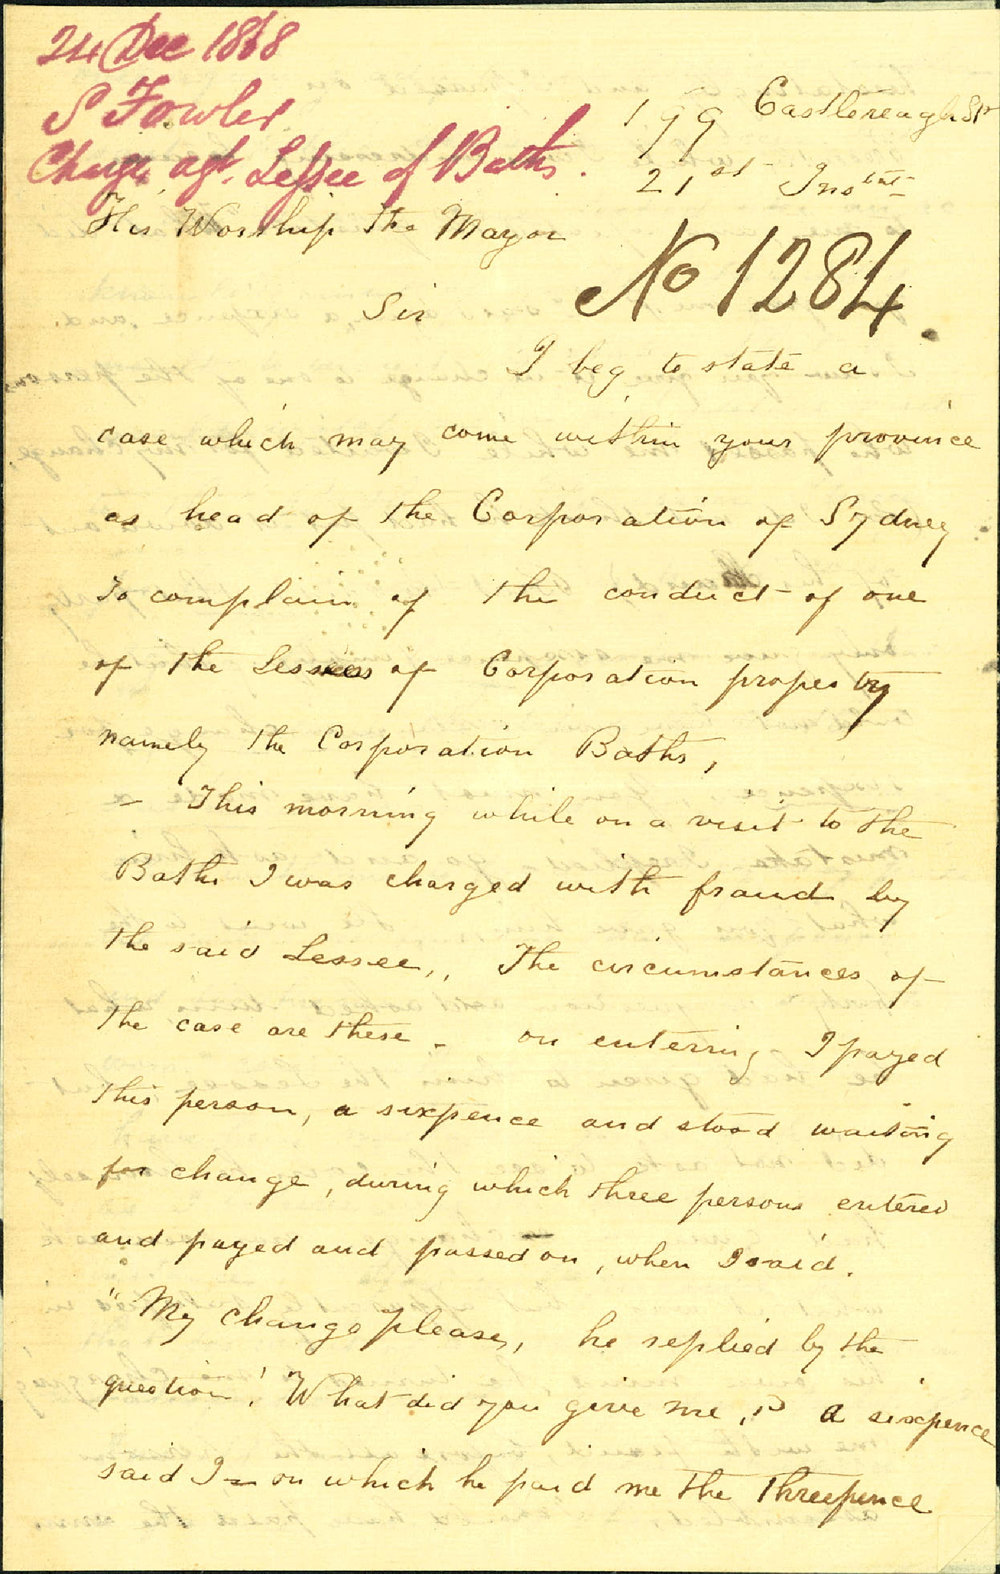 24 Dec 1868
S Fowler
Charge agt. Lessee of Baths.
199 Castlereagh St
21st Inst
His Worship the Mayor
No 1284.
Sir
I beg to state a
case which may come within your province
as head of the Corporation of Sydney
To complain of the conduct of one
of the Lessees of Corporation property
namely the Corporation Baths,
- This morning while on a visit to the
Baths I was charged with fraud by
the said Lessee,, The circumstances of
the case are these - on entering I payed
this person, a sixpence and stood waiting
for change, during which three persons entered
and payed and passed on, when I said.
"My change please, he replied by the
question! What did you give me,? a sixpence
said I - on which he paid me the threepence